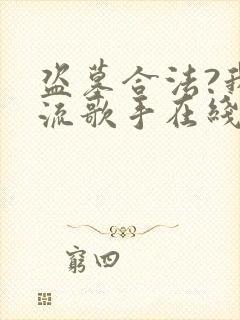 盗墓合法?我
流歌手在线
窮四